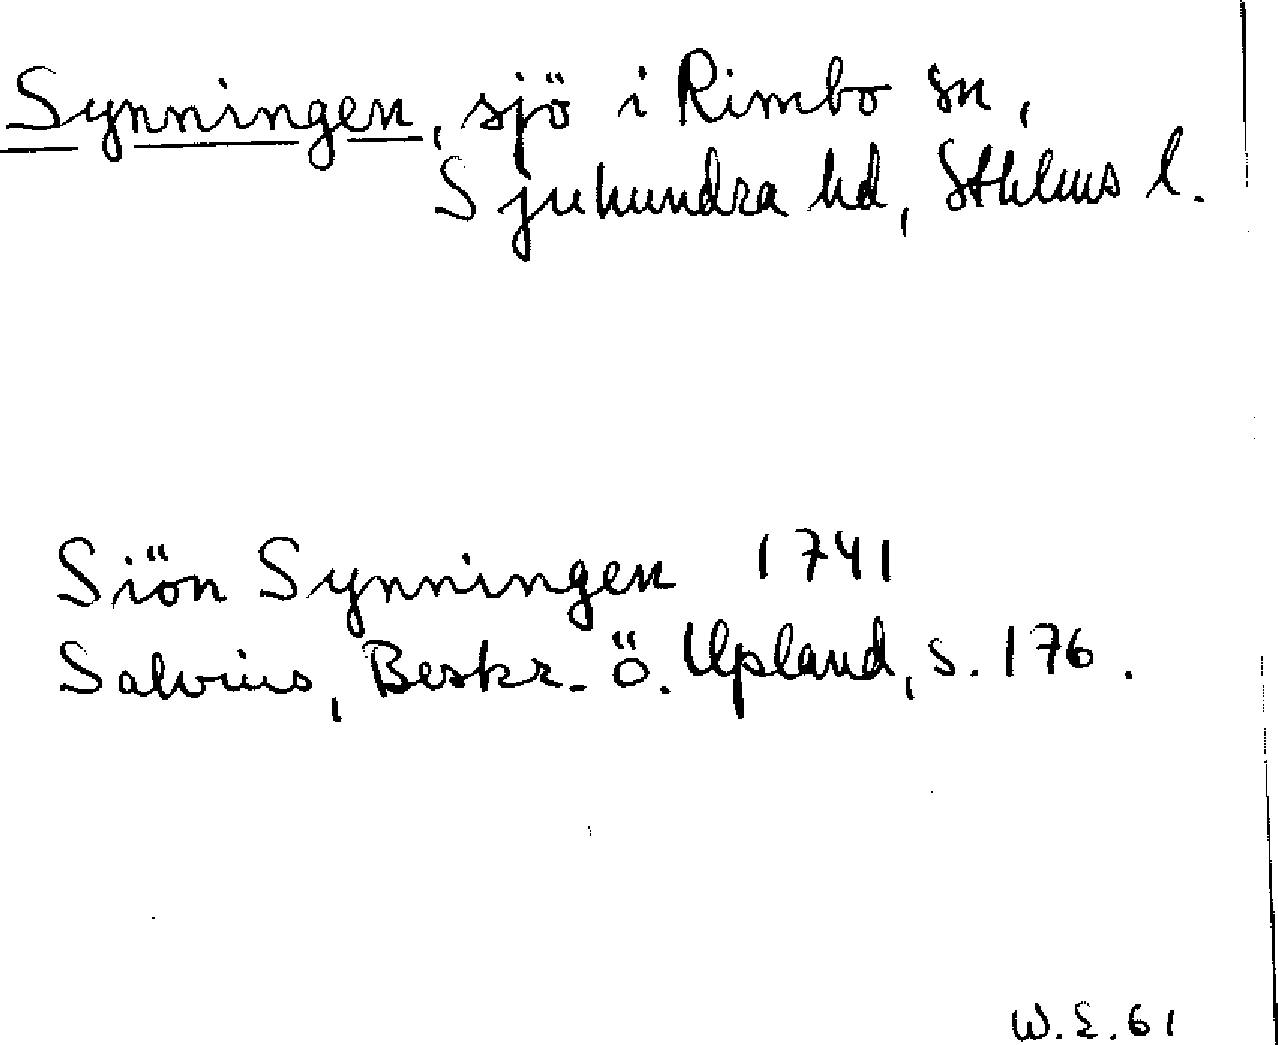 Synningen, sjö i Rimbo sn,
Sjuhundra hd, Sthlms l.
Siön Synningen 1741
Salvius, Beskr. Ö. Upland, s. 176.
W.E.61